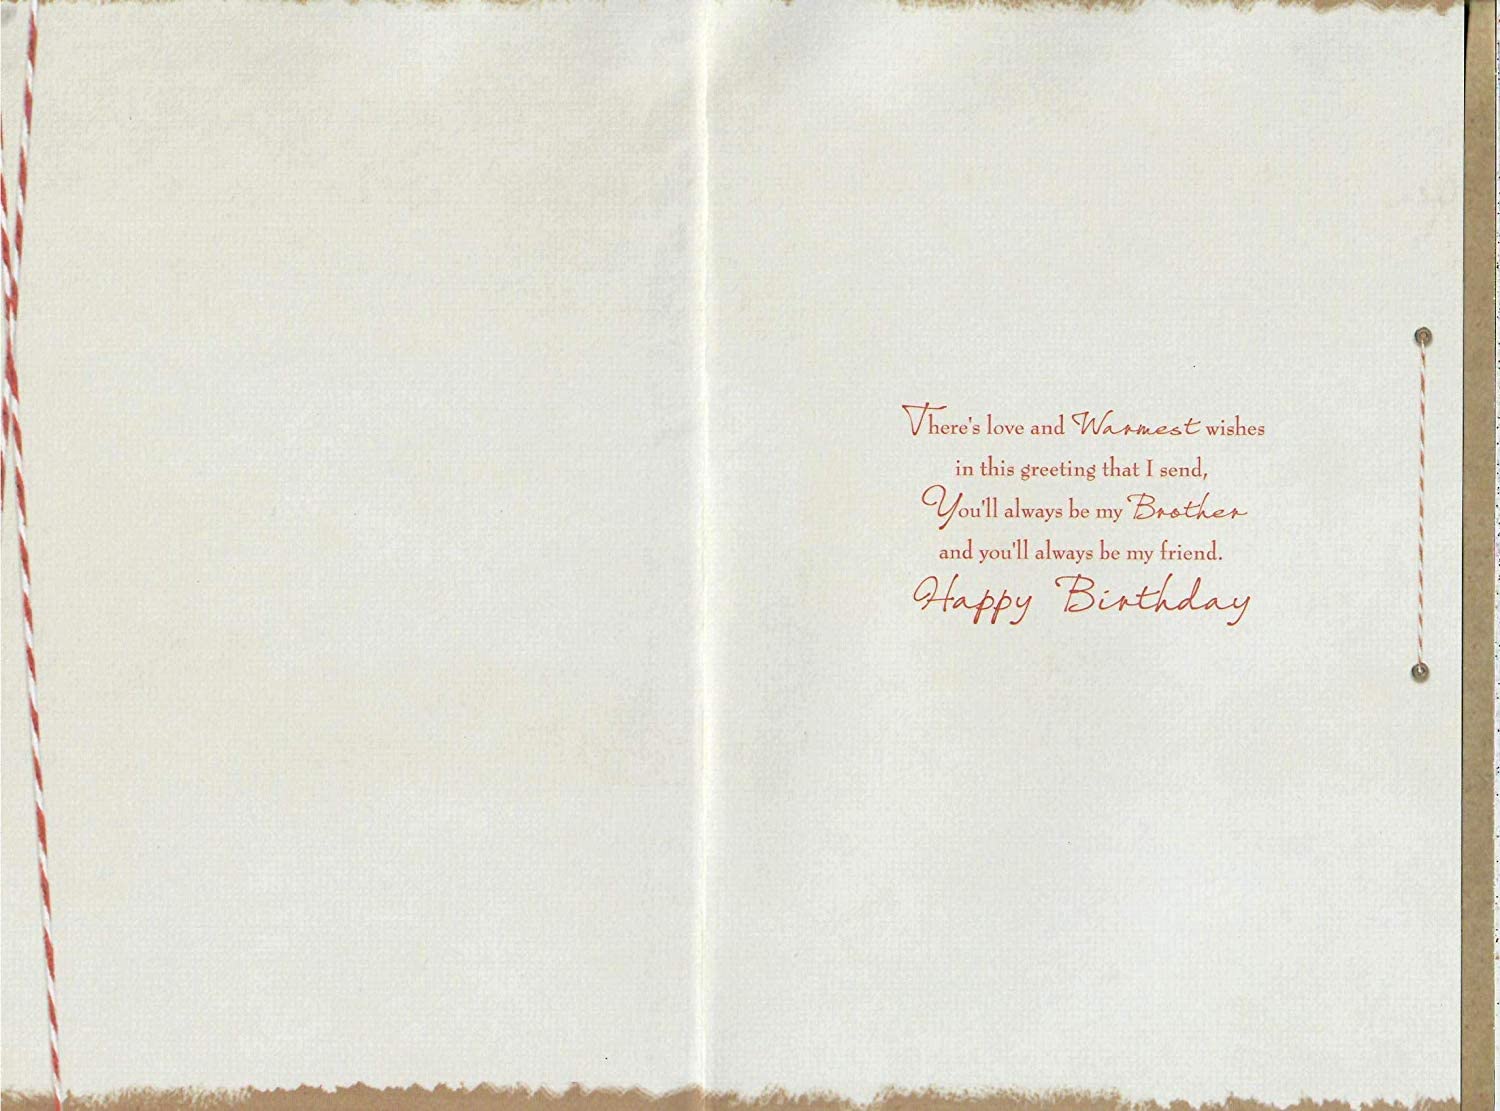 There's love and Warmest wishes
in this greeting that I send,
You'll always be my Brother
and you'll always be my friend.
Happy Birthday